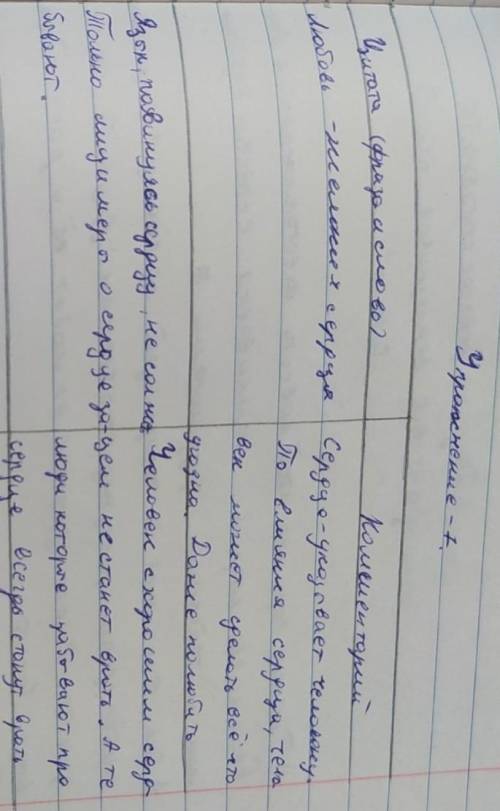 Упражнение-7.
Цитата (фраза и слово)
Комментарий
Любовь - сердца
Сердце-указывает человеку.
По влияния сердца, чело
век может сделать всё что
угодно. Даже полюбить
Язык, повинуясь сердцу, не
Только лицимеры о сердце за-
бывают.
Человек с хорошим серд-
цем не станет врать. А те
люди которые забывают про
сердце всегда стонут врать